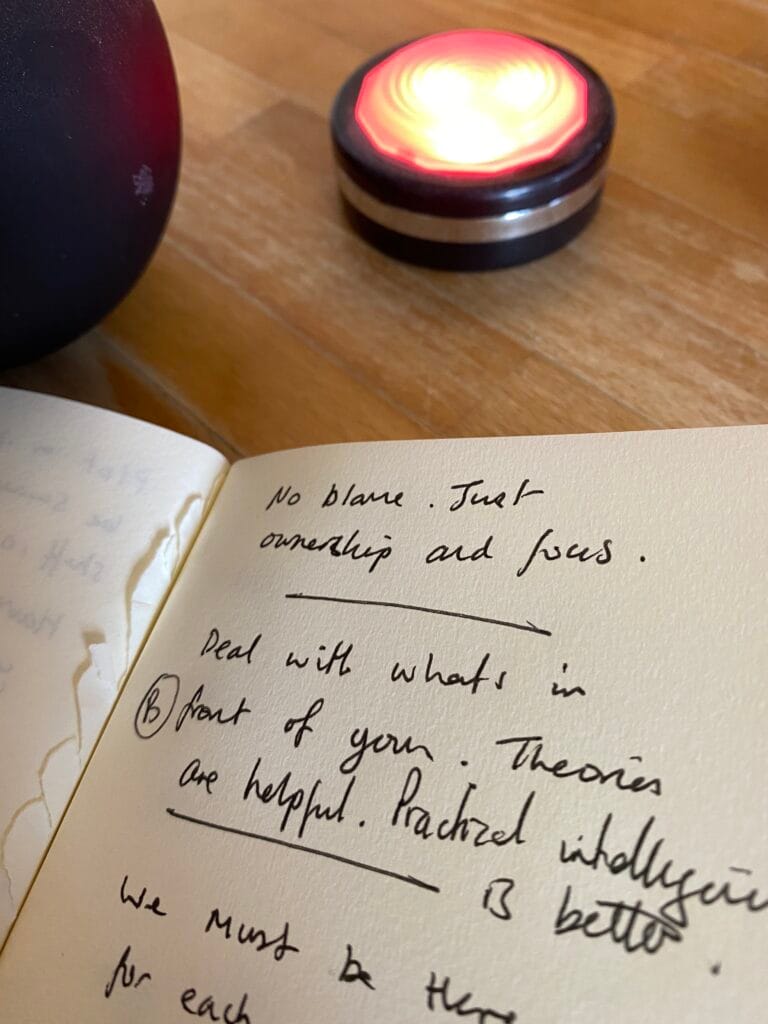 No blame. Just
ownership and focus.
Deal with whats in
B front of you. Theories
are helpful. Practical intelligence
is better.
We Must be Here
for each